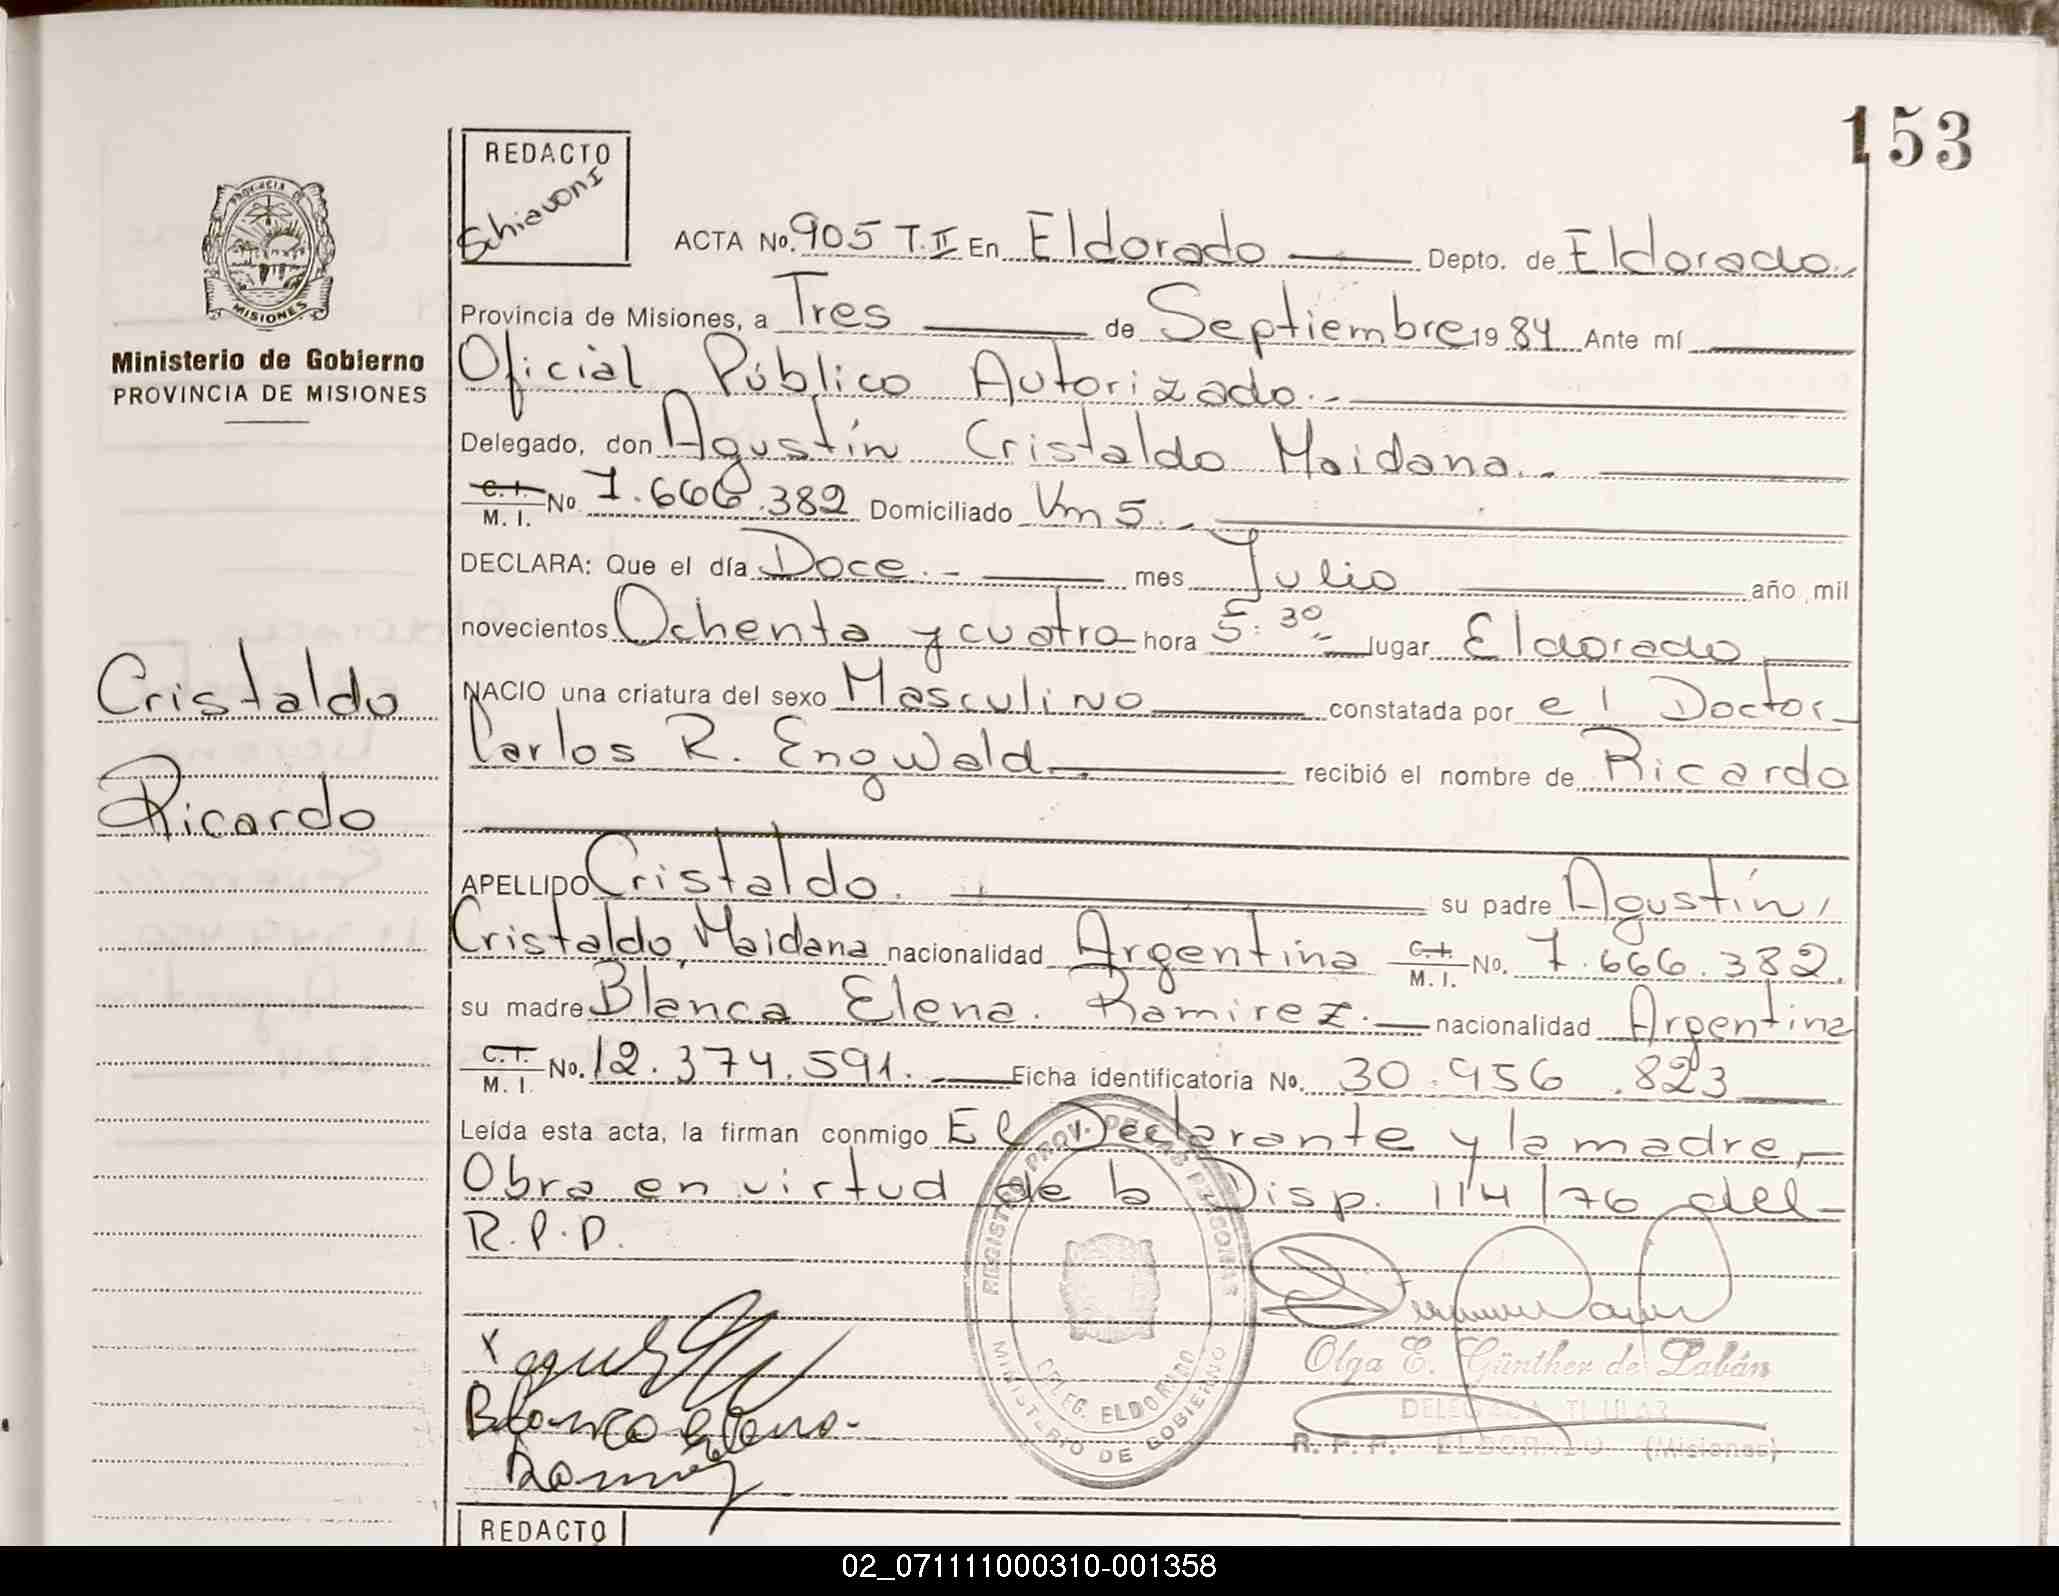 153
REDACTO
Schiavoni
ACTA No. 905 T. II En Eldorado Depto. de Eldorado
PROVINCIA DE
MISIONES
Ministerio de Gobierno
PROVINCIA DE MISIONES
Provincia de Misiones, a Tres de Septiembre 19 84 Ante mí
Oficial Público Autorizado.-
Delegado, don Agustín Cristaldo Maidana.-
C. I. M. I. No 7.666.382 Domiciliado Km 5.-
DECLARA: Que el día Doce.- mes Julio año mil
novecientos Ochenta y cuatro hora 5:30.- lugar Eldorado
NACIO una criatura del sexo Masculino constatada por el Doctor
Carlos R. Engwald.- recibió el nombre de Ricardo
Cristaldo
Ricardo
APELLIDO Cristaldo. su padre Agustín,
Cristaldo, Maidana nacionalidad Argentina C. I. M. I. No. 7.666.382.
su madre Blanca Elena. Ramirez.- nacionalidad Argentina
C. I. M. I. No. 12.374.591.- Ficha identificatoria No. 30.956.823
Leída esta acta, la firman conmigo El Declarante y la madre,-
Obra en virtud de la Disp. 114/76 del-
R.P.P.
REGISTRO PROV. DE LAS PERSONAS
DELEG. ELDORADO
MINISTERIO DE GOBIERNO
Olga E. Günther de Labán
DELEGADA TITULAR
R. P. P. ELDORADO (Misiones)
Blanca Elena.
Ramirez
REDACTO
02_071111000310-001358